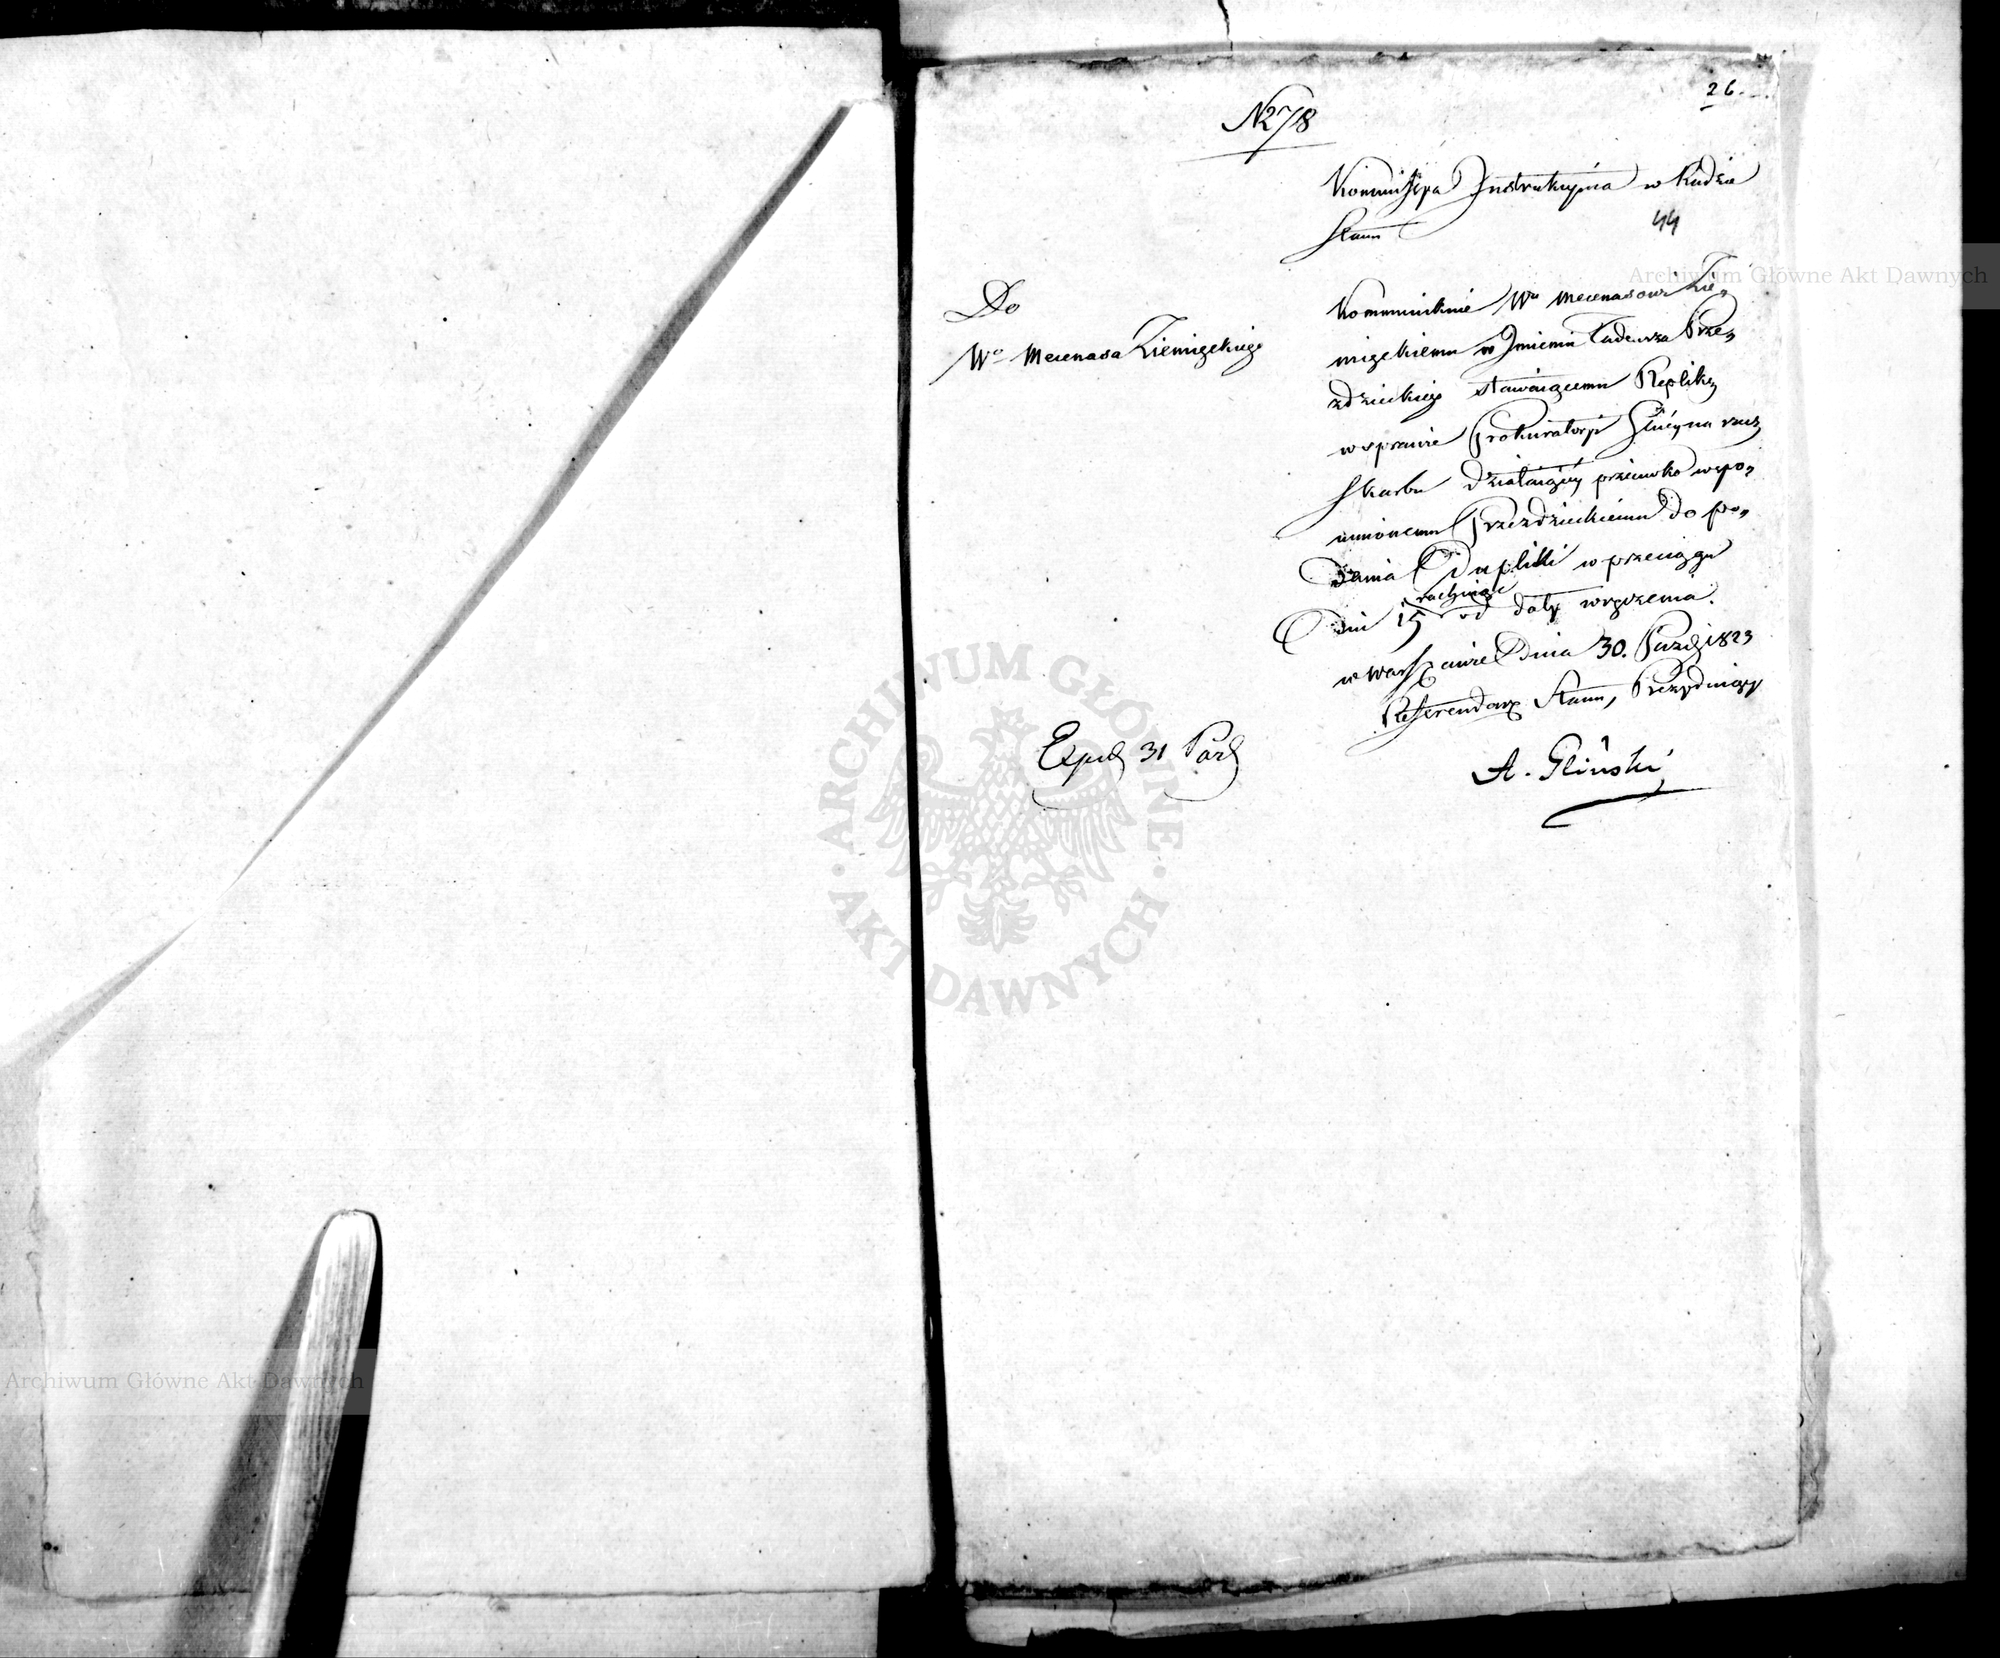 26.
N 278
Kommissya Instrukcyina w Radzie
Stanu
44
Do
Wo Mecenasa Ziemięckiego
Kommunikuie Wu Mecenasowi Zie„
mięckiemu w Imieniu Tadeusza Prze„
zdzieckiego stawaiącemu Replikę
w sprawie Prokuratoryi na rzecz
Skarbu działaiącey przeciwko wspo„
mnionemu Przezdzieckiemu do po„
dania Dupliki w przeciągu
rachuiąc
dni 15 od daty wręczenia.
w Warszawie Dnia 30. Paźdz 1823
Referendarz Stanu, Prezyduiący
A. Gliński
Exped 31 Paźd
Archiwum Główne Akt Dawnych
ARCHIWUM GŁÓWNE AKT DAWNYCH
Archiwum Główne Akt Dawnych